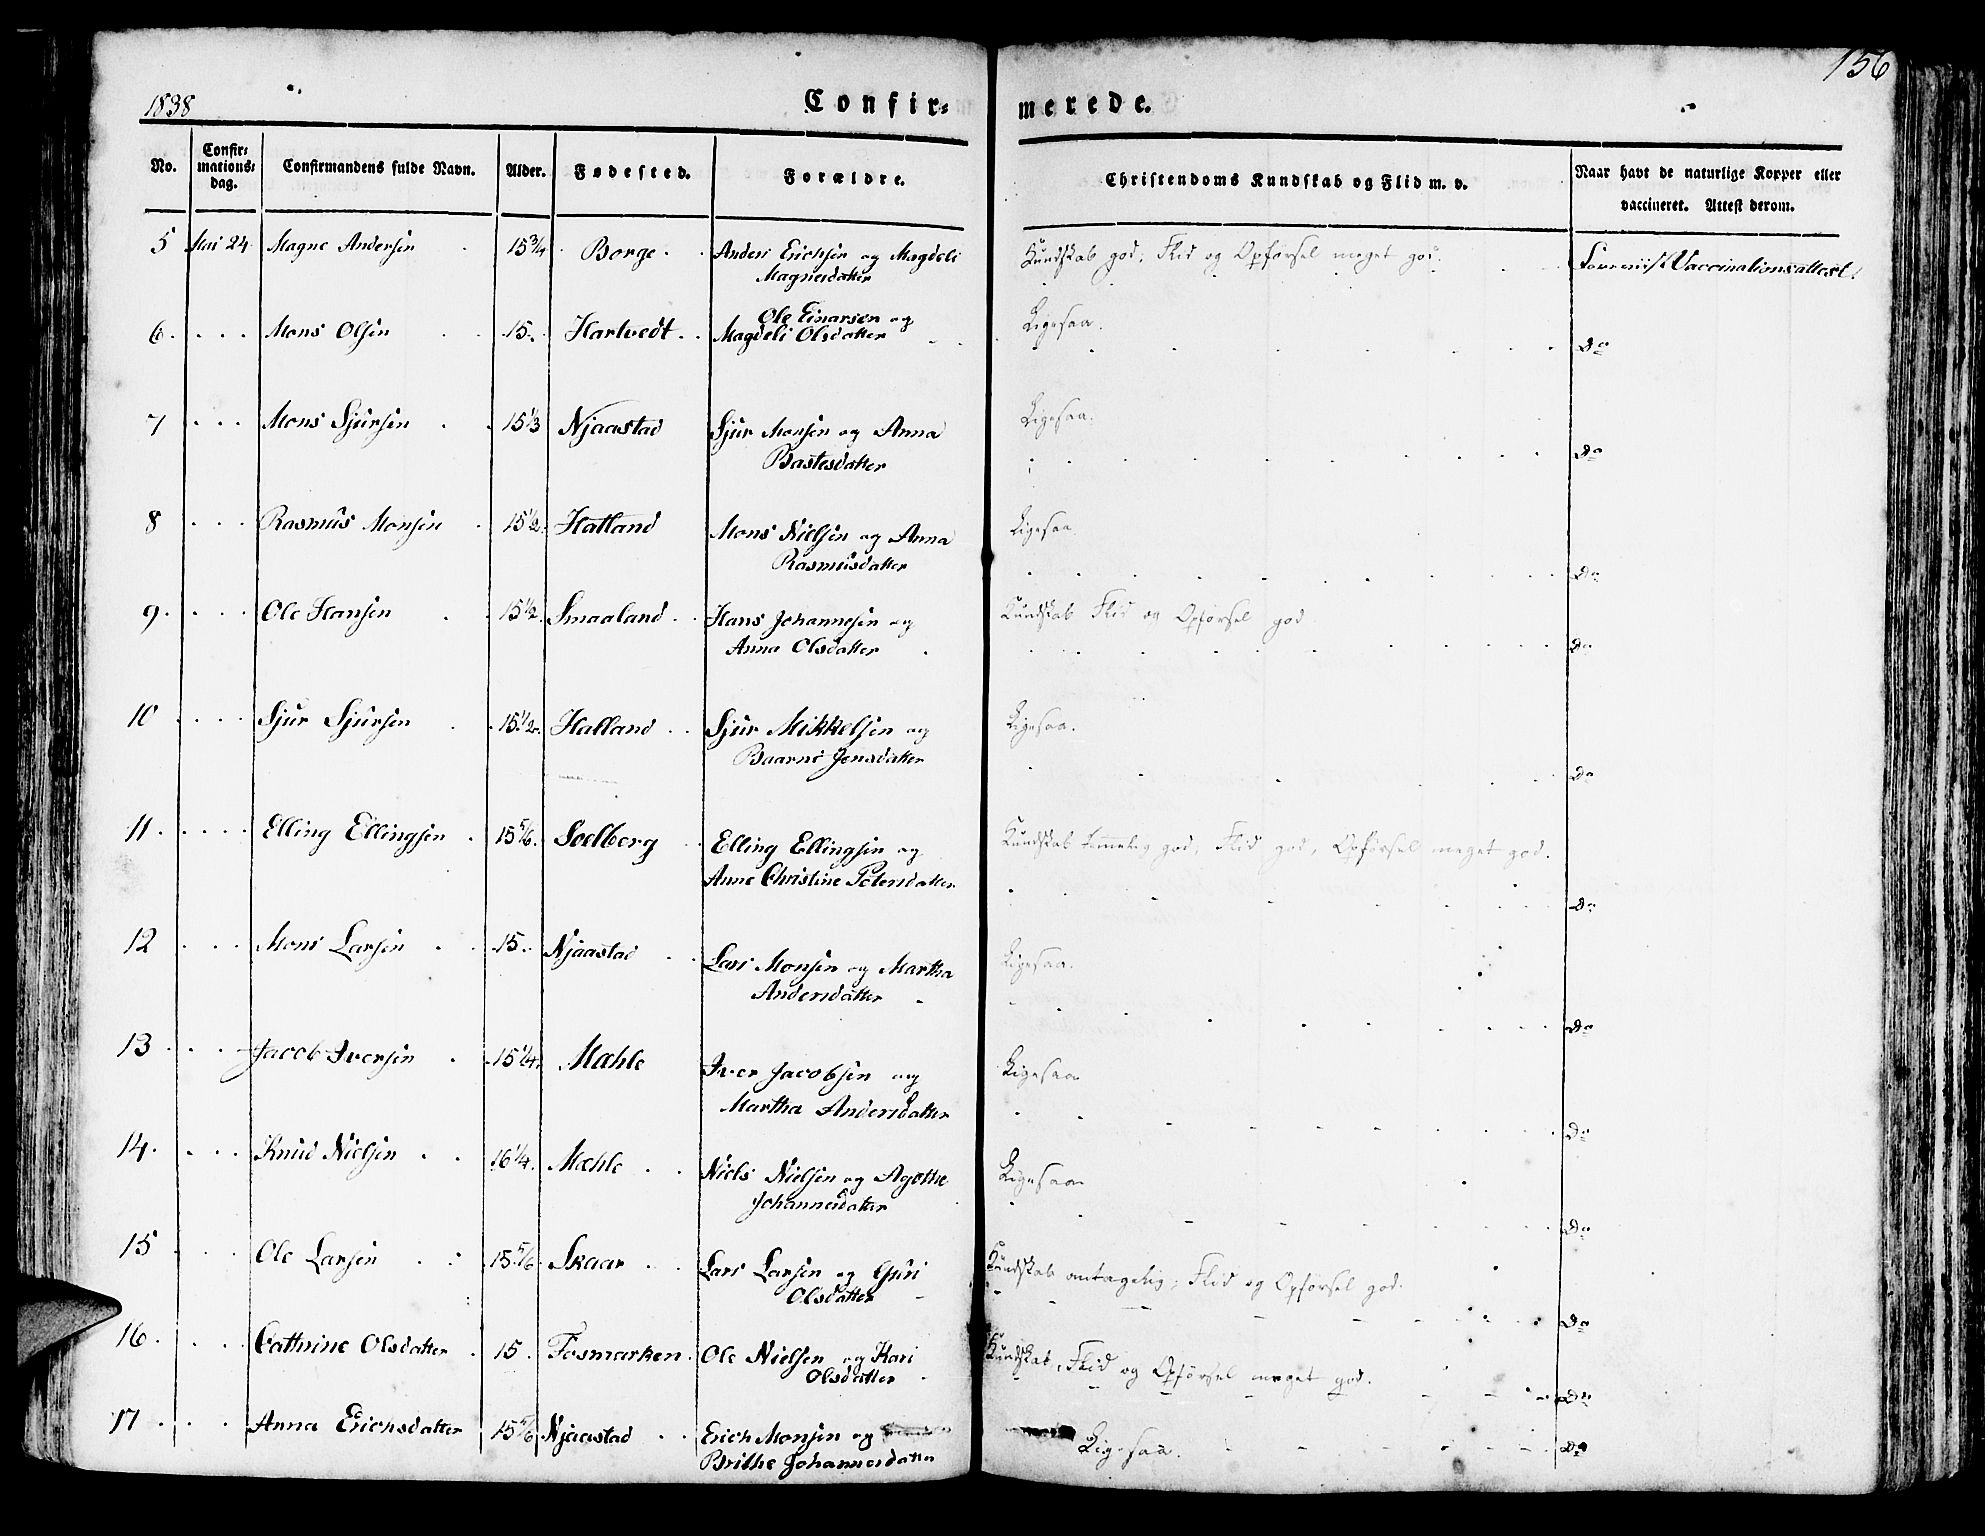 1838 Confir= merede. 156
No. Confir=mations=dag. Confirmandens fulde Navn. Alder. Fødested. Forældre. Christendoms Kundskab og Flid m. v. Naar havt de naturlige Kopper eller vaccineret. Attest derom.
5 Mai 24 Magne Andersen 15 3/4 Borge Anders Erichsen og Magdeli Kundskab god; Flid og Opførsel meget god. Vaccinationsattest
Magnesdatter
Ole Einarsen og
6 Mons Olsen 15 Hartvedt Magdeli Olsdatter Ligesaa. Do
7 Mons Sjursen 15 1/3 Njaastad Sjur Monsen og Anna Ligesaa.
Bastesdatter Do
8 Rasmus Monsen 15 1/2 Hatland Mons Nielsen og Anna Ligesaa
Rasmusdatter Do
9 Ole Hansen 15 1/2 Smaaland Hans Johannesen og Kundskab Flid og Opførsel god
Anna Olsdatter Do
10 Sjur Sjursen 15 1/2 Halland Sjur Mikkelsen og Ligesaa.
Baarni Jensdatter Do
11 Elling Ellingsen 15 5/6 Soelberg Elling Ellingsen og Kundskab temmelig god, Flid god, Opførsel meget god.
Anne Christine Petersdatter Do
12 Mons Larsen 15 Njaastad Lars Monsen og Martha Ligesaa.
Andersdatter Do
13 Jacob Iversen 15 1/4 Mæhle Iver Jacobsen og Ligesaa
Martha Andersdatter Do
14 Knud Nielsen 16 1/4 Mæhle Niels Nielsen og Agothe Ligesaa
Johannesdatter Do
15 Ole Larsen 15 5/6 Skaar Lars Larsen og Guri Kundskab antagelig; Flid og Opførsel god.
Olsdatter Do
16 Cathrine Olsdatter 15 Fosmarken Ole Nielsen og Kari Kundskab, Flid og Opførsel meget god.
Olsdatter Do
17 Anna Erichsdatter 15 5/6 Njaastad Erich Monsen og Ligesaa. Do
Brithe Johannesdatter